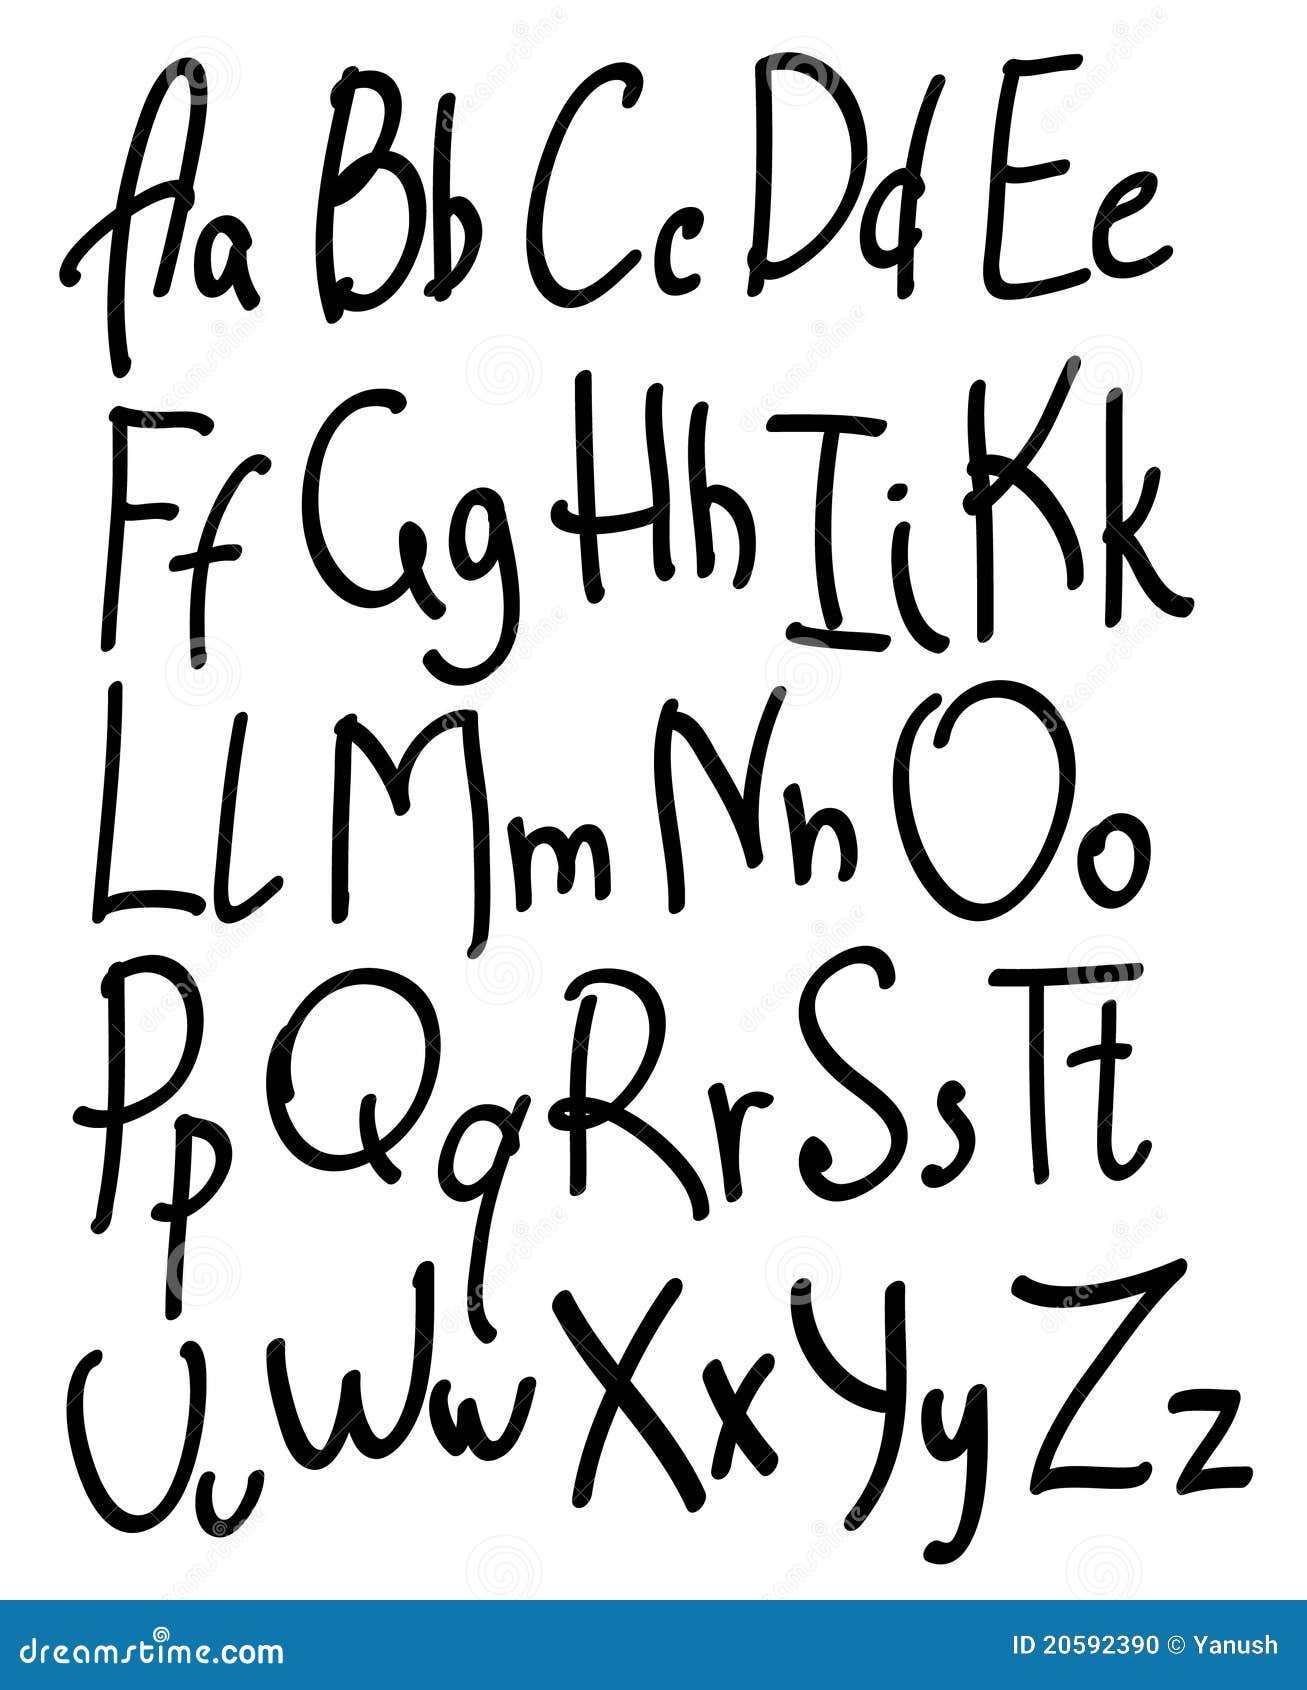 Aa Bb Cc Dd Ee
Ff Gg Hh Ii Kk
Ll Mm Nn Oo
Pp Qq Rr Ss Tt
Uu Ww Xx Yy Zz
dreamstime.com
ID 20592390 © Yanush